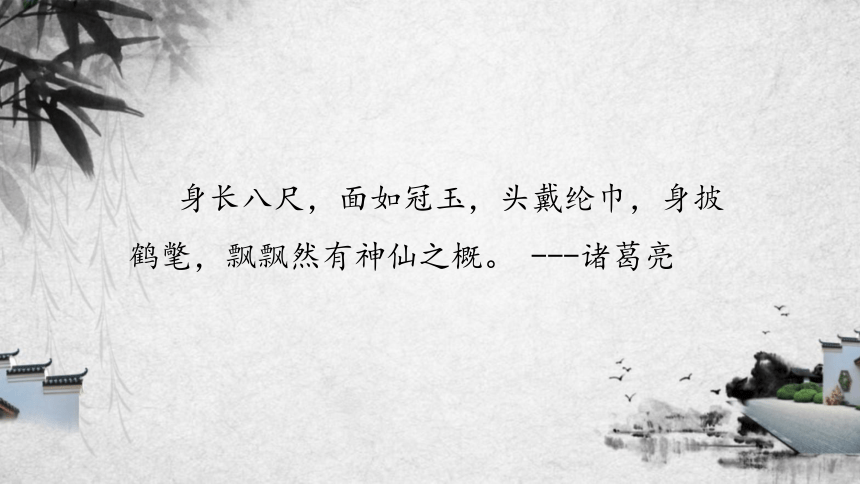 身长八尺，面如冠玉，头戴纶巾，身披
鹤氅，飘飘然有神仙之概。 ---诸葛亮